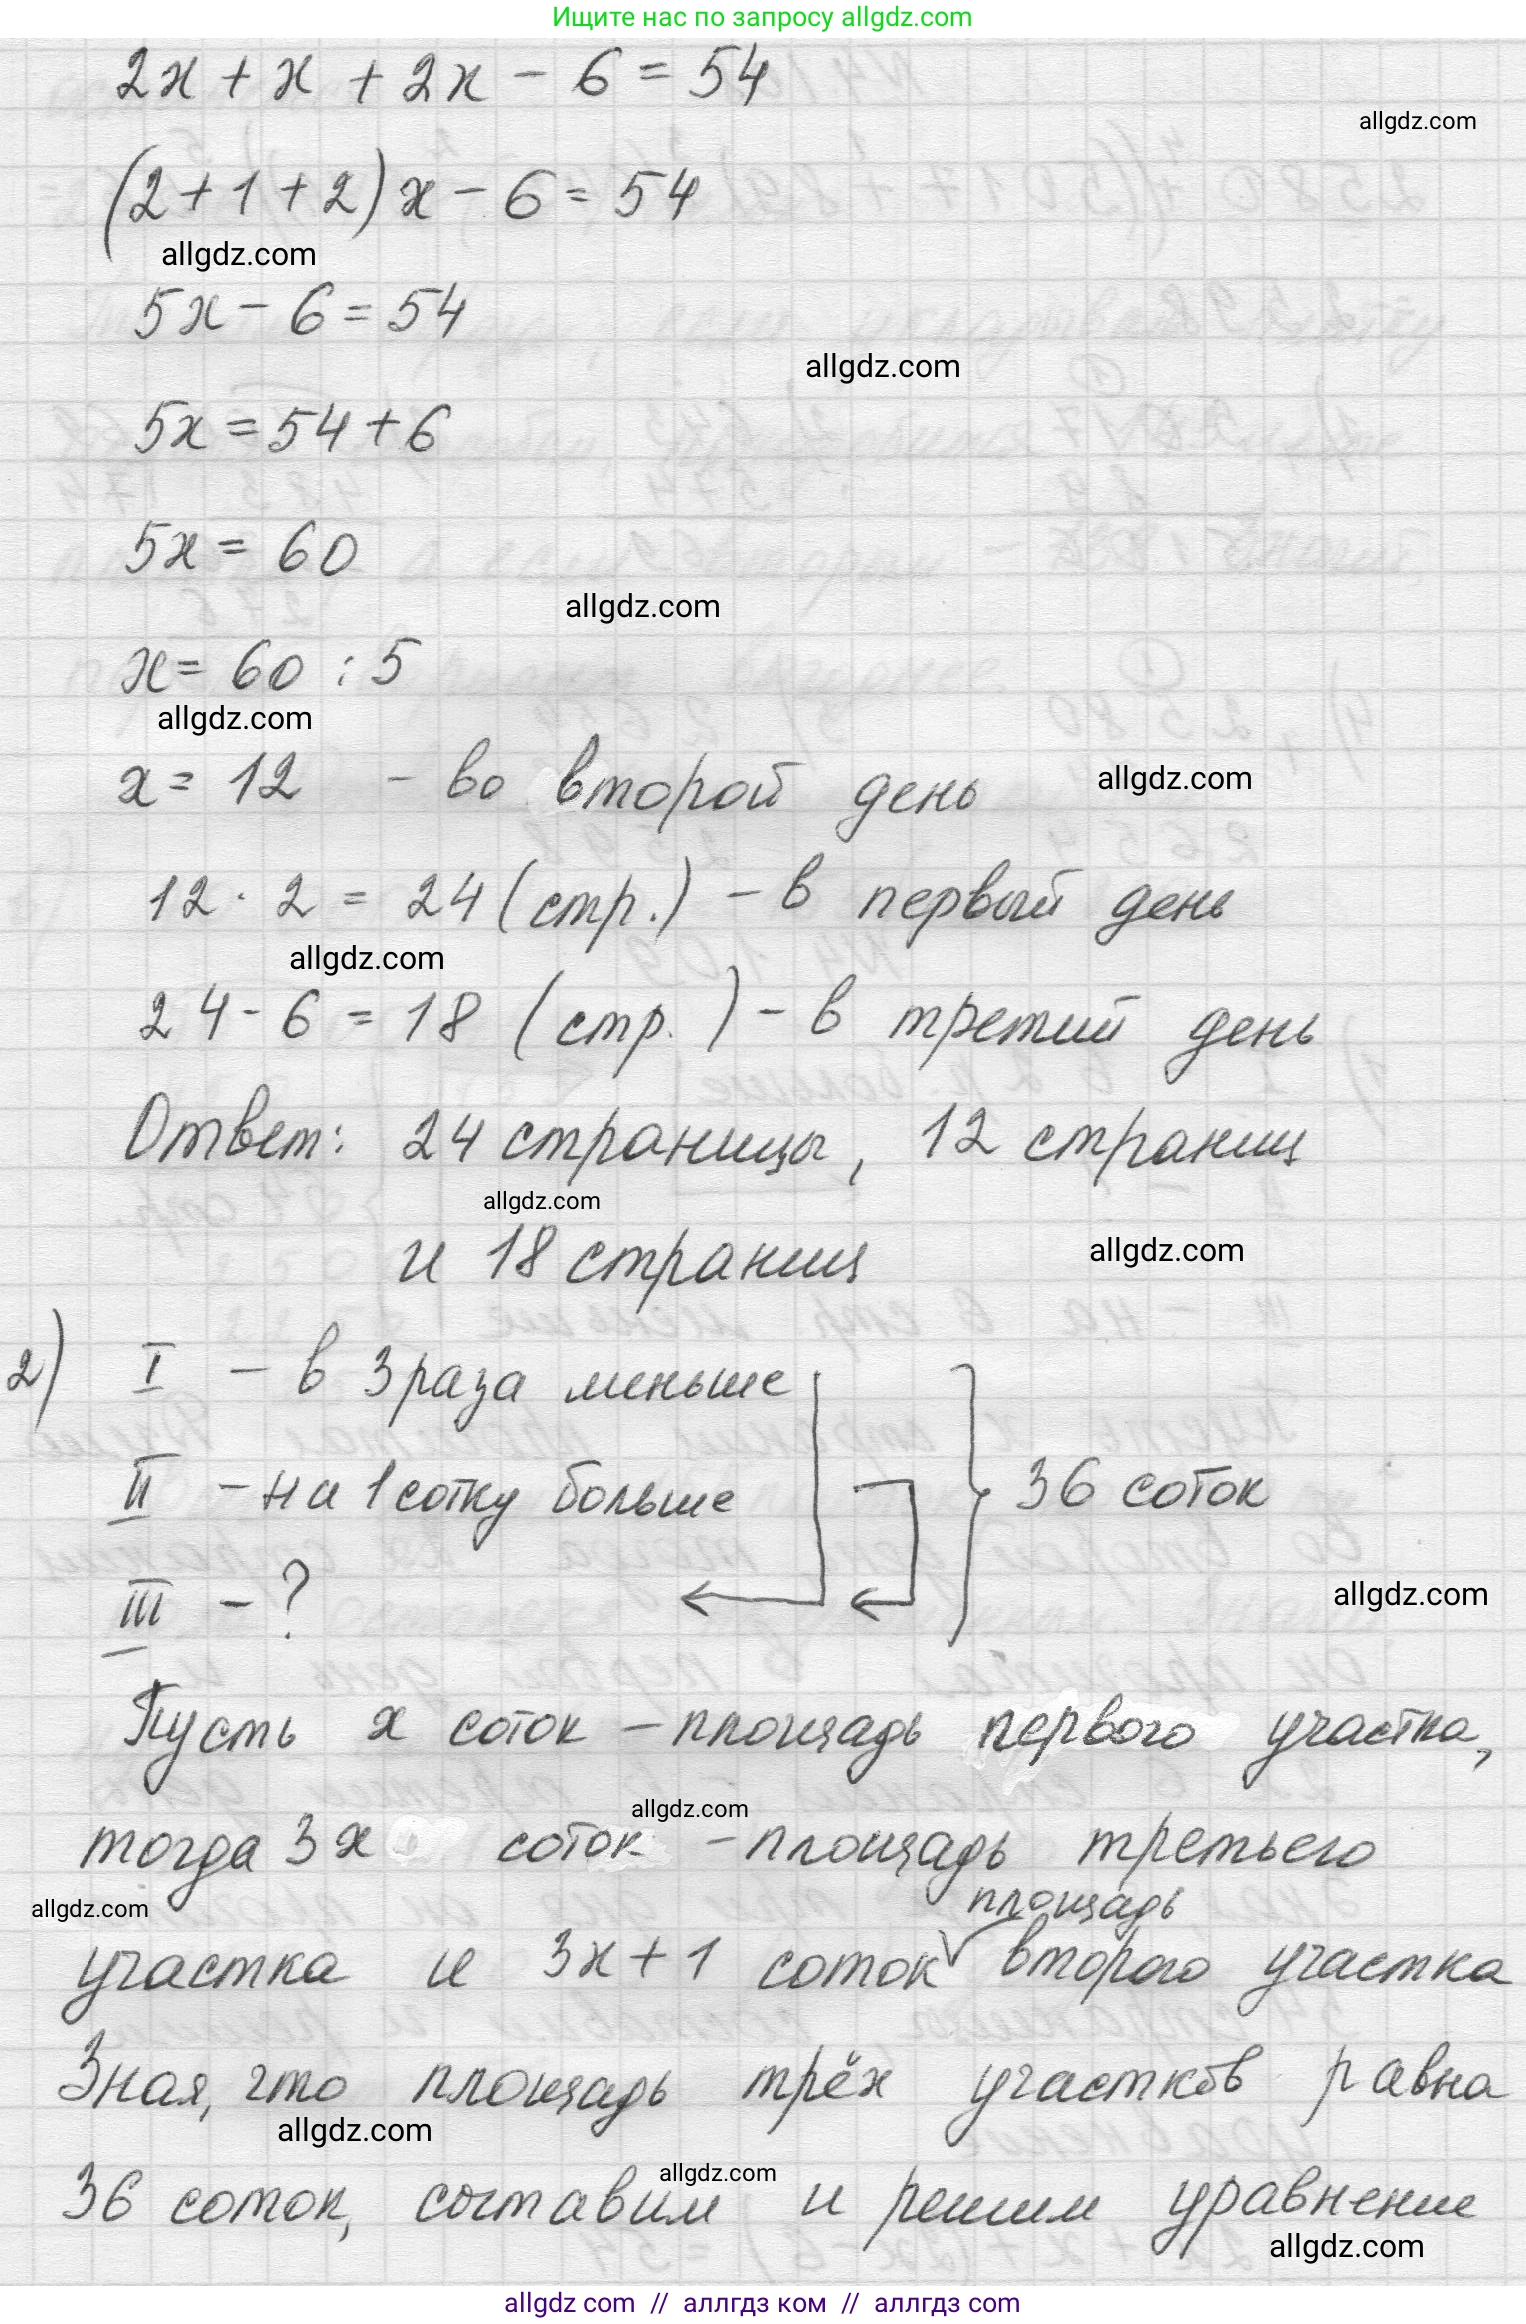 Ищите нас по запросу allgdz.com
2x + x + 2x - 6 = 54
allgdz.com
(2 + 1 + 2) x - 6 = 54
allgdz.com
5x - 6 = 54
allgdz.com
5x = 54 + 6
5x = 60
allgdz.com
x = 60 : 5
allgdz.com
x = 12 - во второй день
allgdz.com
12 · 2 = 24 (стр.) - в первый день
allgdz.com
24 - 6 = 18 (стр.) - в третий день
Ответ: 24 страницы, 12 страниц
allgdz.com
и 18 страниц
allgdz.com
2) I - в 3 раза меньше
II - на 1 сотку больше } 36 соток
III - ?
allgdz.com
Пусть x соток - площадь первого участка,
allgdz.com
тогда 3x соток - площадь третьего
allgdz.com
площадь
участка и 3x + 1 соток второго участка
Зная, что площадь трёх участков равна
allgdz.com
allgdz.com
36 соток, составим и решим уравнение
allgdz.com
allgdz.com // аллгдз ком // аллгдз com